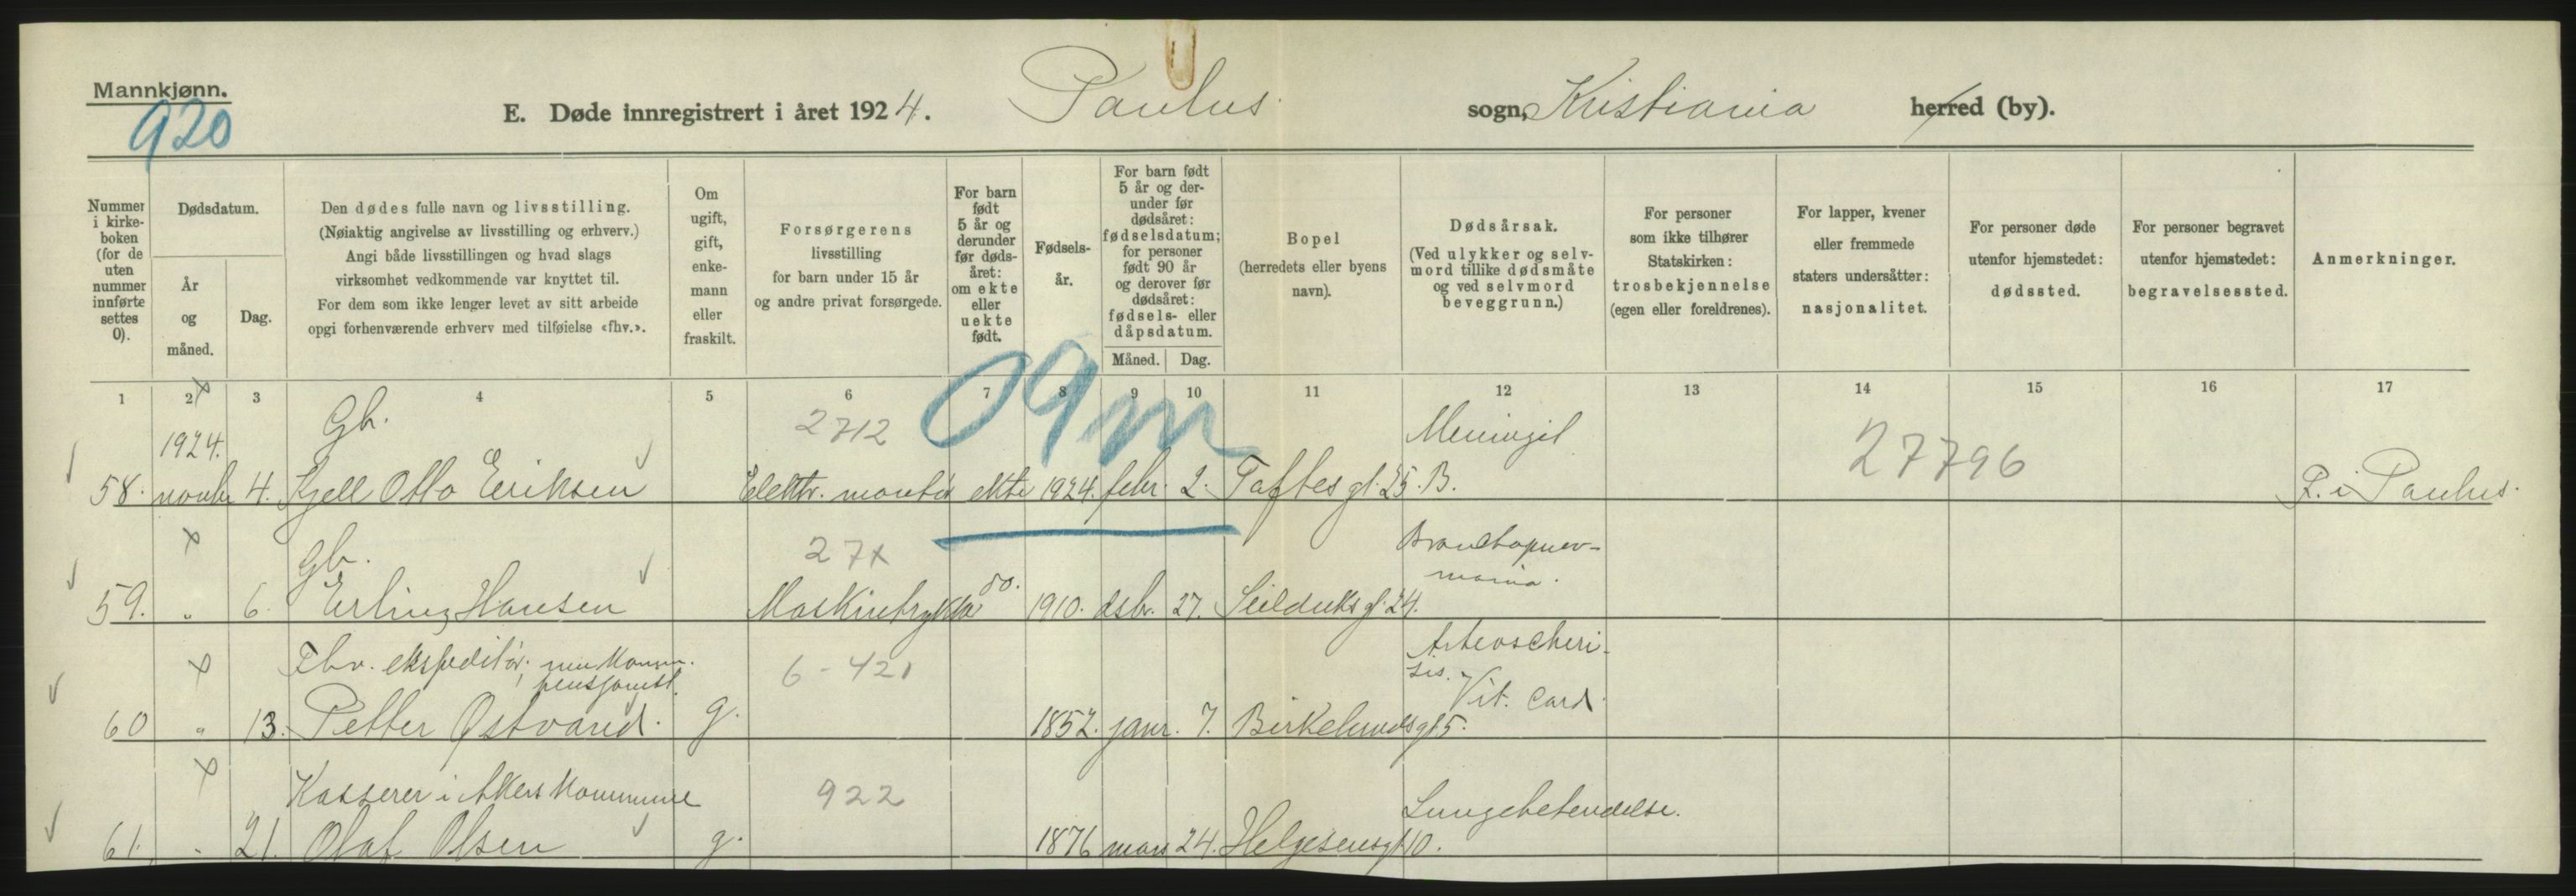 Mannkjønn.
920
E. Døde innregistrert i året 1924. Paulus sogn, Kristiania herred (by).
Nummer i kirkeboken (for de uten nummer innførte settes 0).
Dødsdatum.
År og måned.
Dag.
Den dødes fulle navn og livsstilling. (Nøiaktig angivelse av livsstilling og erhverv.) Angi både livsstillingen og hvad slags virksomhet vedkommende var knyttet til. For dem som ikke lenger levet av sitt arbeide opgi forhenværende erhverv med tilføielse «fhv.».
Om ugift, gift, enkemann eller fraskilt.
Forsørgerens livsstilling for barn under 15 år og andre privat forsørgede.
For barn født 5 år og derunder før dødsåret: om ekte eller uekte født.
Fødselsår.
For barn født 5 år og derunder før dødsåret: fødselsdatum; for personer født 90 år og derover før dødsåret: fødsels- eller dåpsdatum.
Måned. Dag.
Bopel (herredets eller byens navn).
Dødsårsak. (Ved ulykker og selvmord tillike dødsmåte og ved selvmord beveggrunn.)
For personer som ikke tilhører Statskirken: trosbekjennelse (egen eller foreldrenes).
For lapper, kvener eller fremmede staters undersåtter: nasjonalitet.
For personer døde utenfor hjemstedet: dødssted.
For personer begravet utenfor hjemstedet: begravelsessted.
Anmerkninger.
1 2 3 4 5 6 7 8 9 10 11 12 13 14 15 16 17
09m
1924. Gb. 2712 Meningit 27796
58. novbr 4. Kjell Otto Eriksen Elektr. montør ekte 1924. febr. 2. Toftes gt. 25. B. P. i Paulus.
Gb. 27x Bronchopnev-
monia.
59. " 6. Erling Hansen Maskintrykker do. 1910. dsbr. 27. Seilduks gt. 24.
Fhv. ekspeditør, nu komm. 6-421 Arterioscheri-
pensjonist. sis. Vit. Card.
60 " 13. Petter Østvand. g. 1852. janr. 7. Birkelunds gt 5.
Kasserer i Akers Kommune 922 Lungebetendelse.
61. " 21. Olaf Olsen g. 1876 mars 24. Helgesens gt 10.